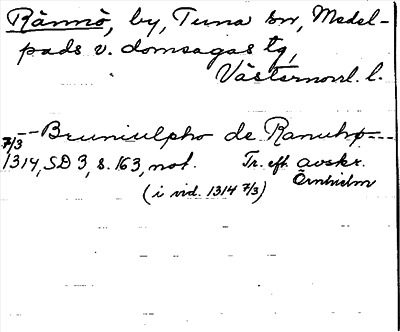 Rännö, by, Tuna sn, Medel-
pads v. domsagas tg,
Västernorrl. l.
-- Bruniulpho de Ranuhø ---
7/3 1314, SD 3, s. 163, not. Tr. eft. avskr.
Örnhielm
(i vid. 1314 7/3)